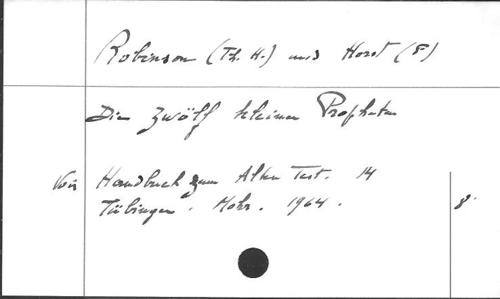 Robinson (Th. H.) und Horst (F)
Die Zwölf kleinen Propheten
Voir Handbuch zum Alten Test. 14
Tübingen. Mohr. 1964. 8°